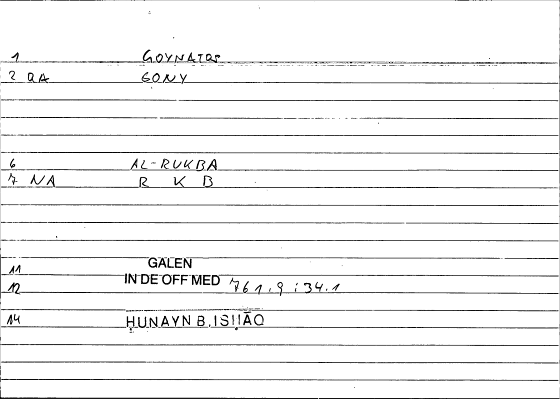 1 GOYNATOS
2 QA GONY
6 AL-RUKBA
7 NA R K B
11 GALEN
12 IN DE OFF MED 761.9:34.1
14 ḤUNAYN B. ISḤĀQ